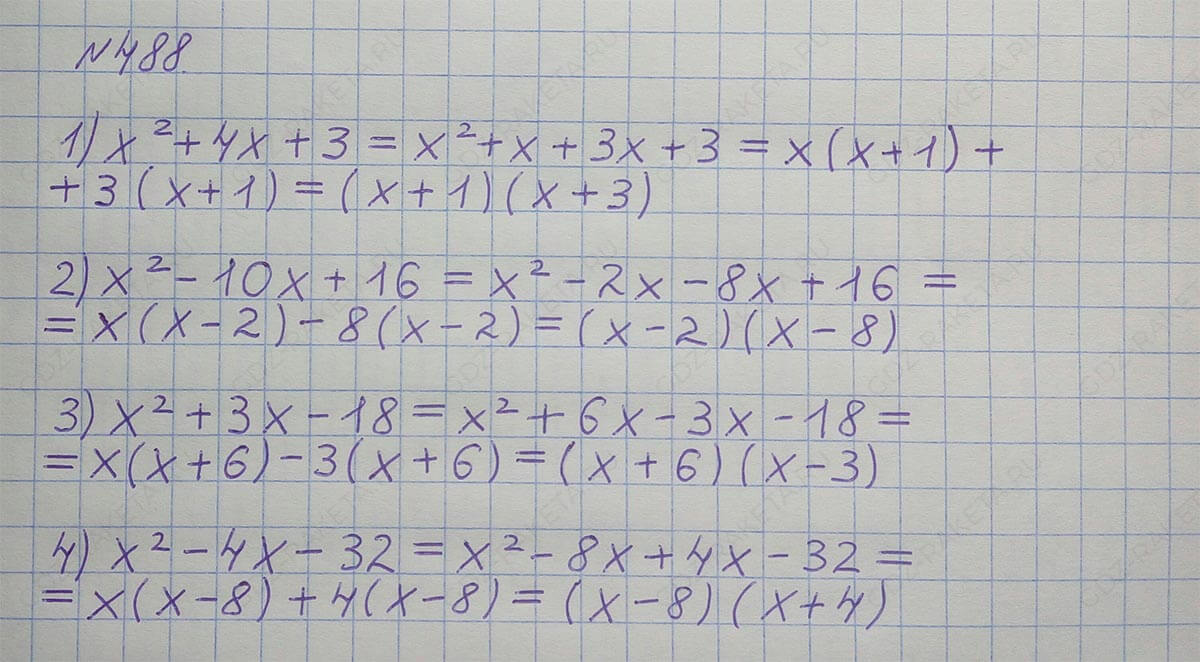 N488.
1) x² + 4x + 3 = x² + x + 3x + 3 = x (x + 1) +
+ 3 (x + 1) = (x + 1) (x + 3)
2) x² - 10x + 16 = x² - 2x - 8x + 16 =
= x (x - 2) - 8 (x - 2) = (x - 2) (x - 8)
3) x² + 3x - 18 = x² + 6x - 3x - 18 =
= x (x + 6) - 3 (x + 6) = (x + 6) (x - 3)
4) x² - 4x - 32 = x² - 8x + 4x - 32 =
= x (x - 8) + 4 (x - 8) = (x - 8) (x + 4)
GDZ-RAKETA.RU